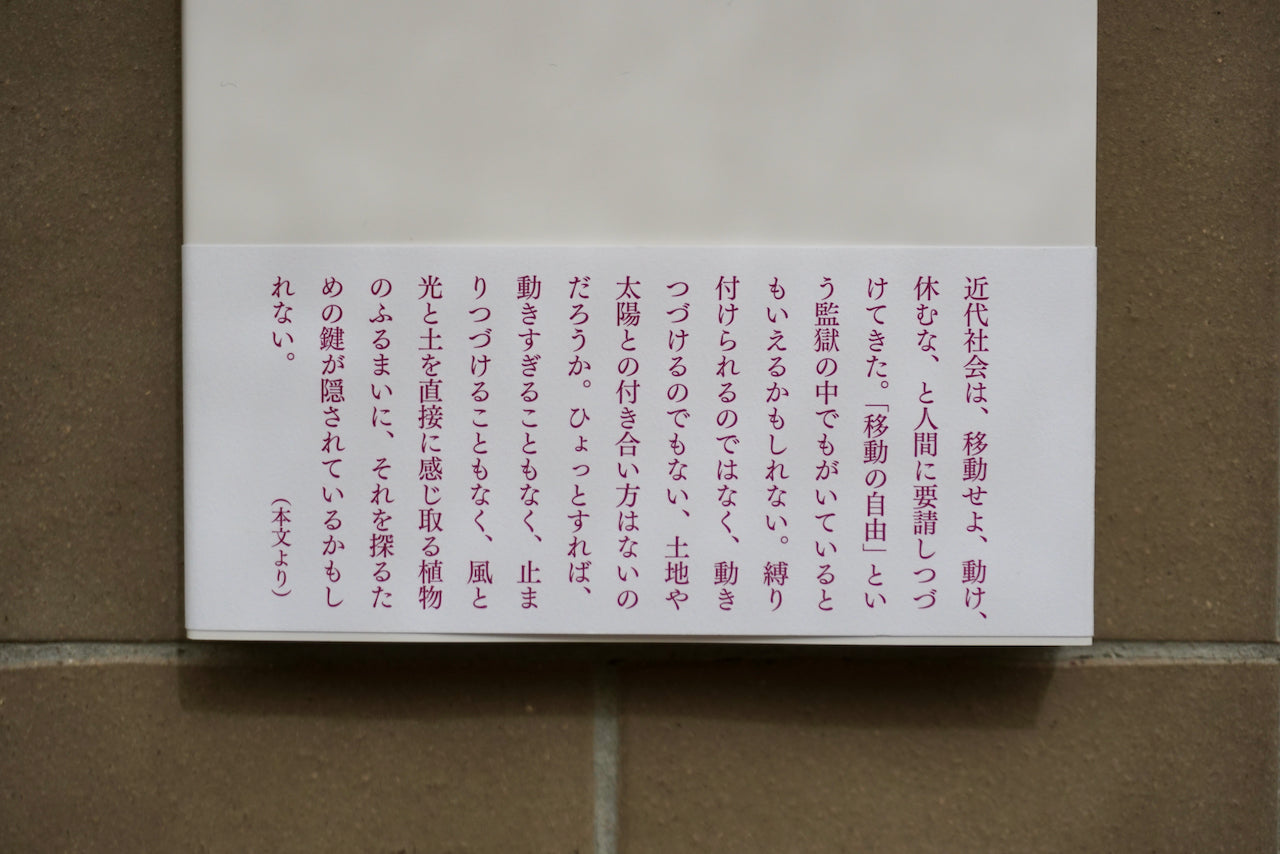 近代社会は、移動せよ、動け、
休むな、と人間に要請しつづ
けてきた。「移動の自由」とい
う監獄の中でもがいていると
もいえるかもしれない。縛り
付けられるのではなく、動き
つづけるのでもない、土地や
太陽との付き合い方はないの
だろうか。ひょっとすれば、
動きすぎることもなく、止ま
りつづけることもなく、風と
光と土を直接に感じ取る植物
のふるまいに、それを探るた
めの鍵が隠されているかもし
れない。
（本文より）